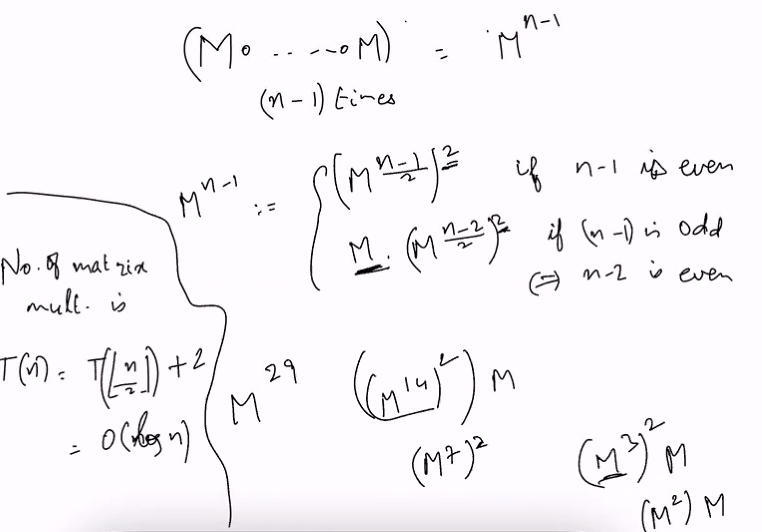 (M∘ ..---∘M) = M^{n-1}
(n-1) times
M^{n-1} := { (M^{\frac{n-1}{2}})^2 if n-1 is even
M. (M^{\frac{n-2}{2}})^2 if (n-1) is odd
(⇒) n-2 is even
No. of matrix
mult. is
T(n) = T(⌊\frac{n}{2}⌋) + 2
= O(log n)
M^{29} ((M^{14})^2) M
(M^7)^2
(M^3)^2 M
(M^2) M